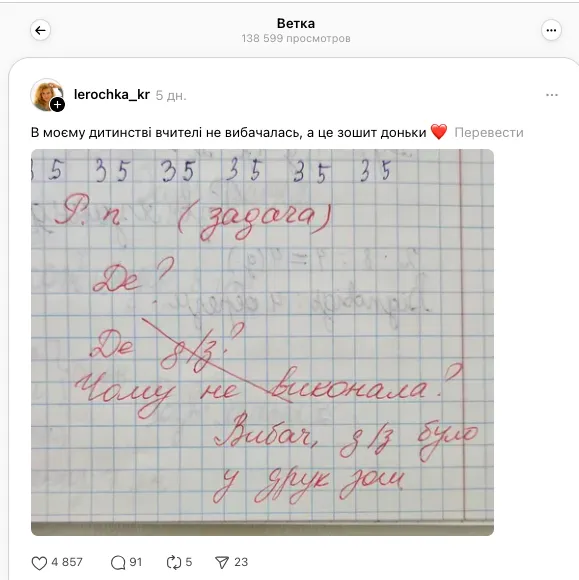 Ветка
138 599 просмотров
lerochka_kr 5 дн.
В моєму дитинстві вчителі не вибачалась, а це зошит доньки ❤️ Перевести
35 35 35 35 35 35
Р.п. (задача)
Де?
Де д/з?
Чому не виконала?
Вибач, д/з було
у друк зош
4 857 91 5 23